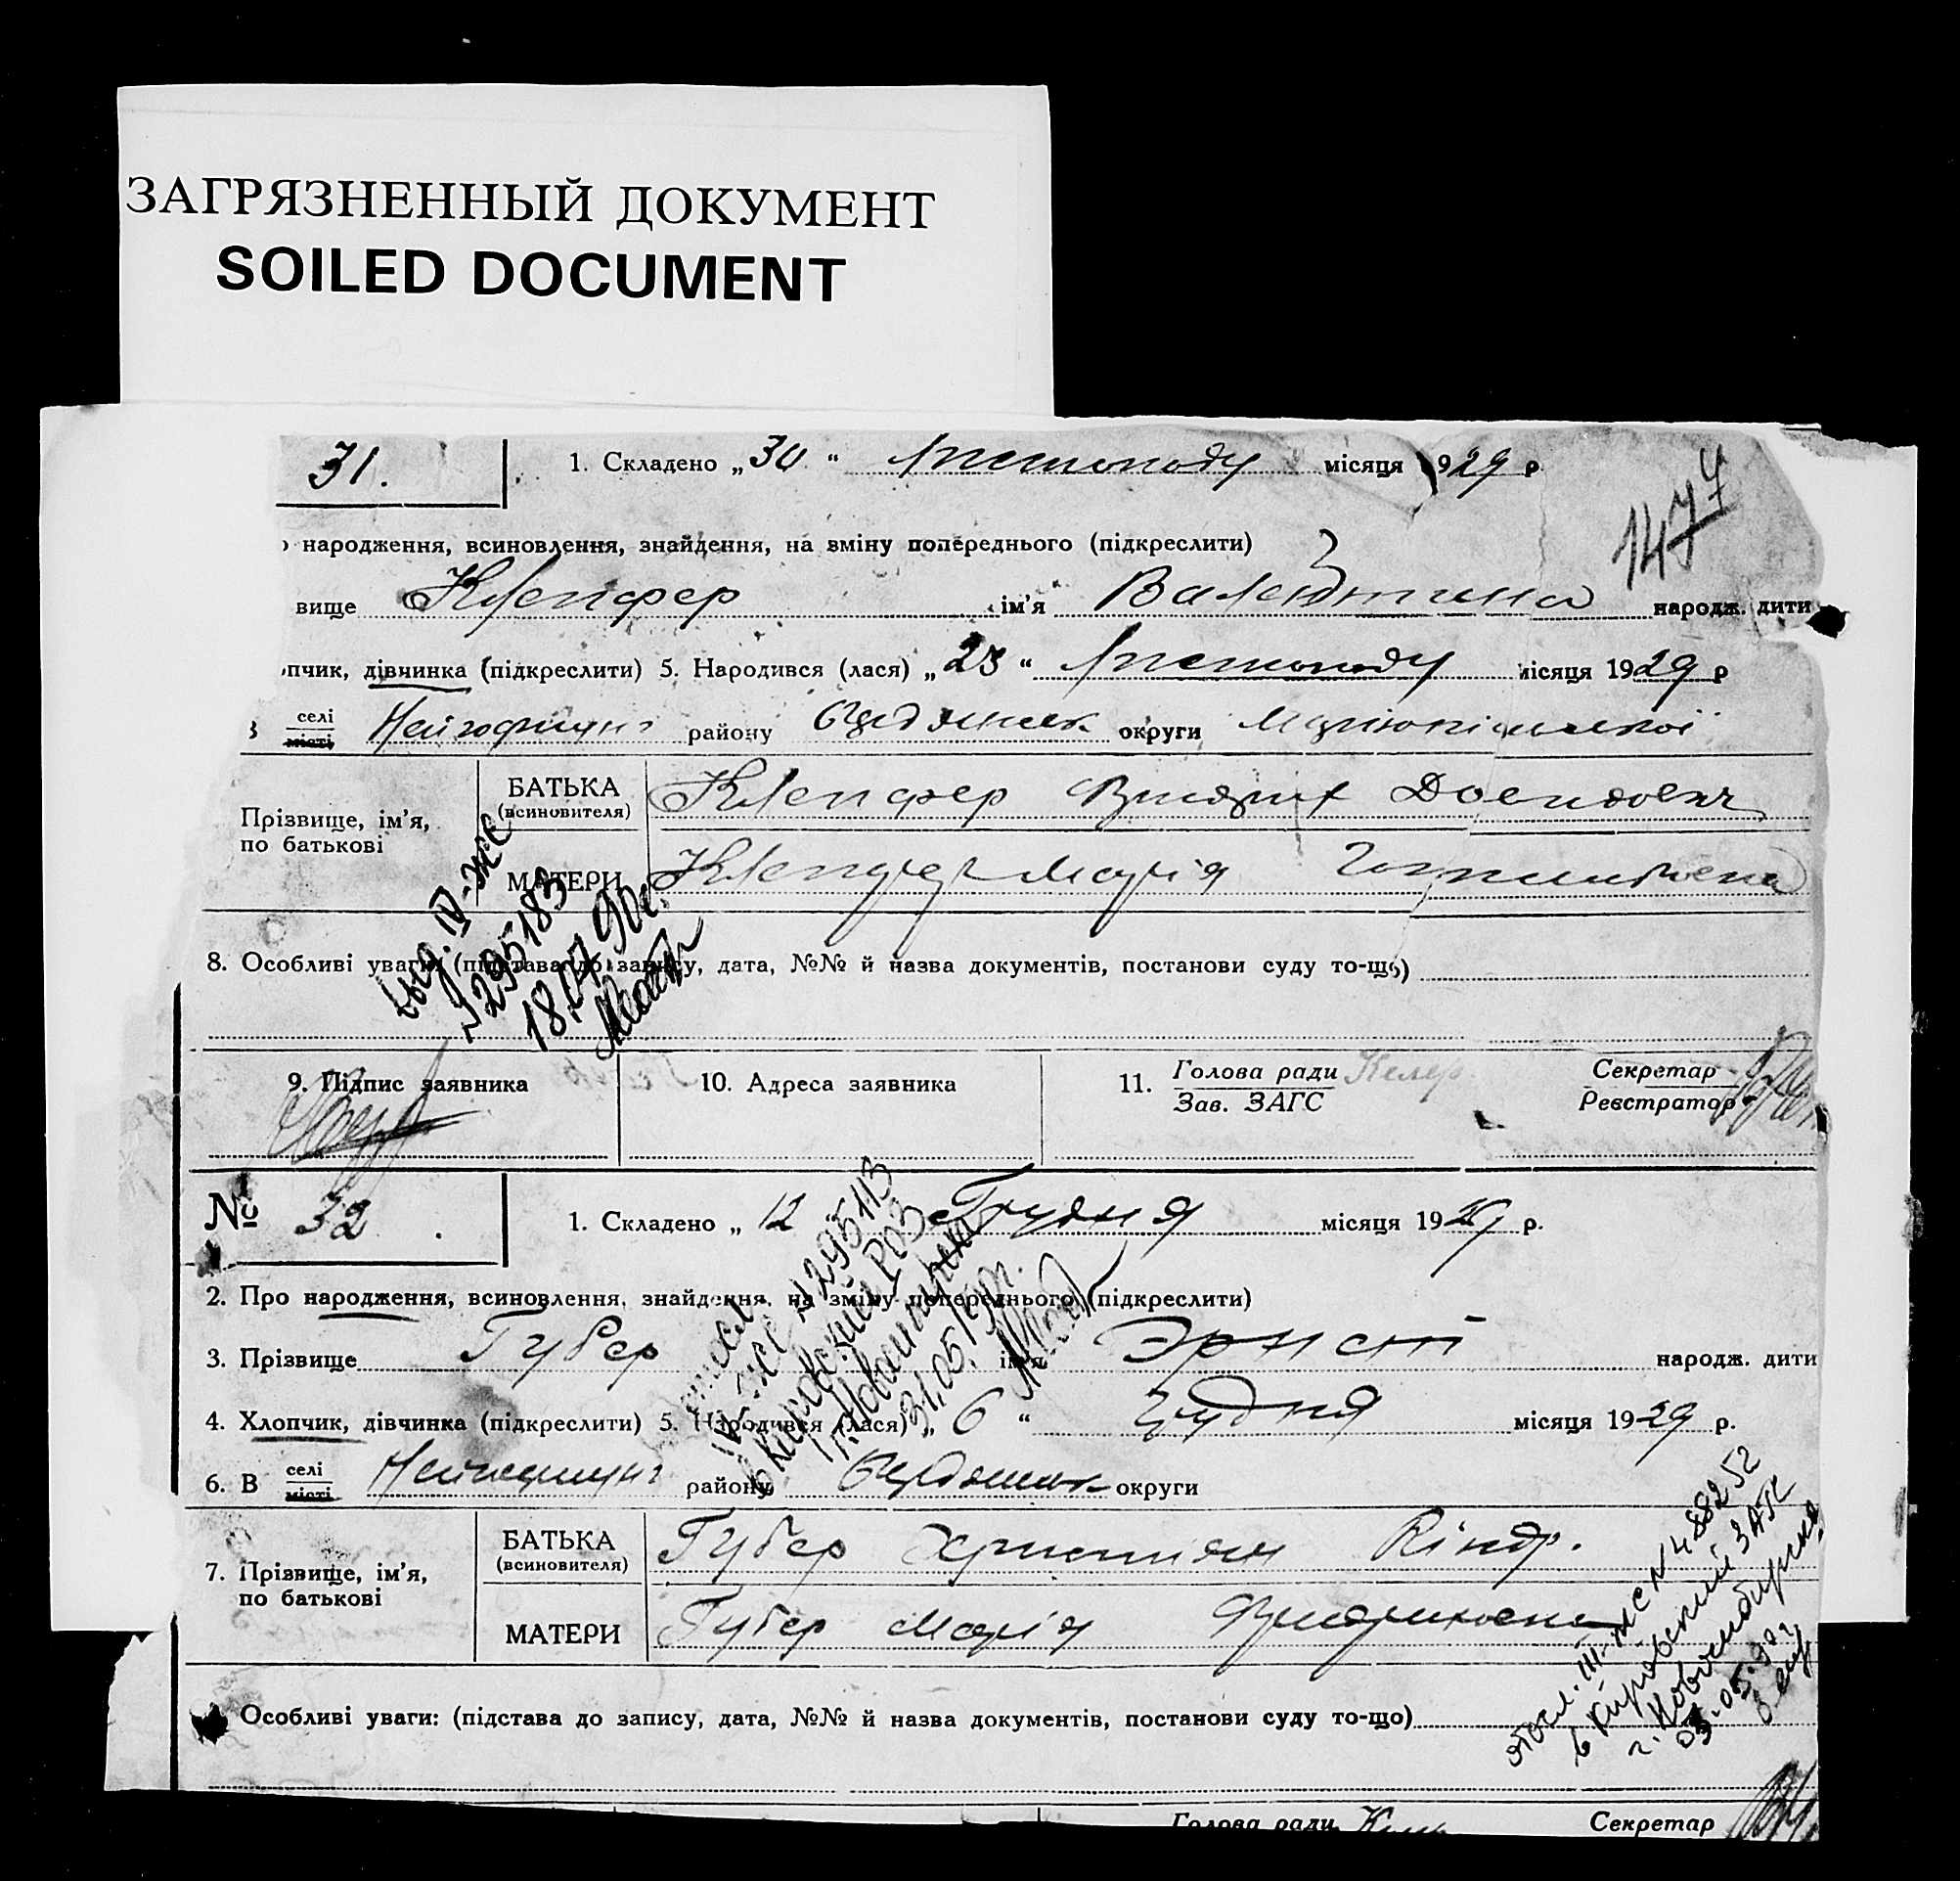 ЗАГРЯЗНЕННЫЙ ДОКУМЕНТ
SOILED DOCUMENT
31.
1. Складено „30“ листопаду місяця 1929 р
1477
народження, всиновлення, знайдення, на зміну попереднього (підкреслити)
вище Клепфер ім'я Валентина народж. дити
пчик, дівчинка (підкреслити) 5. Народився (лася) „23“ листопаду місяця 1929 р
в селі місті району Бердянськ округи Маріюпільської
Прізвище, ім'я, по батькові
БАТЬКА (всиновителя) Клепфер
МАТЕРИ Клепфер Марія
8. Особливі уваги: (підстава до запису, дата, №№ й назва документів, постанови суду то-що)
выд. IV-ЖС
№295183
18.07.90г.
9. Підпис заявника
10. Адреса заявника
11. Голова ради Келер
Зав. ЗАГС
Секретар
Реєстратор
№ 32.
1. Складено „12 Грудня місяця 1929 р.
2. Про народження, всиновлення, знайдення, на зміну попереднього (підкреслити)
3. Прізвище Губер ім'я Эрнст народж. дити
4. Хлопчик, дівчинка (підкреслити) 5. Народився (лася) „6“ Грудня місяця 1929 р.
6. В селі місті району Бердянськ округи
№295113
в Кировский РОЗ
г. Новошахтинск
31.05.90г.
7. Прізвище, ім'я, по батькові
БАТЬКА (всиновителя) Губер Християн Кіндр.
МАТЕРИ Губер Марія
Особливі уваги: (підстава до запису, дата, №№ й назва документів, постанови суду то-що)
посл. III-ЖС №488252
в Кировский ЗАГС
г. Новосибирска
03.05.90г
Голова ради
Секретар